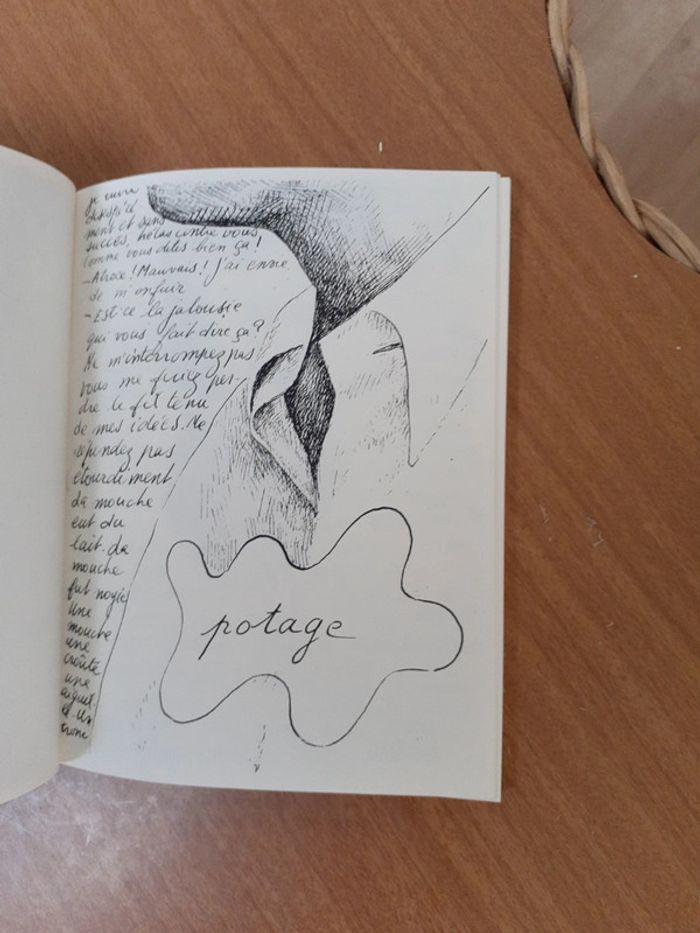 je
désespéré
ment et sans
succès, hélas contre vous
comme vous dites bien ça !
- Atroce ! Mauvais ! J'ai envie
de m'enfuir
- Est-ce la jalousie
qui vous fait dire ça ?
Ne m'interrompez pas
vous me faites per-
dre le fil tenu
de mes idées. Ne
répondez pas
étourdiment
La mouche
eut du
lait. La
mouche
fut noyée
Une
mouche
une
croûte
une
et un
potage